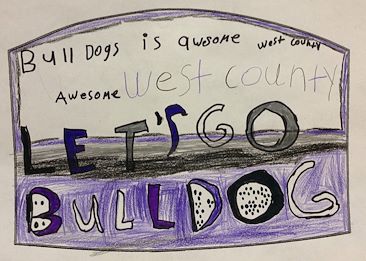 Bull Dogs is awsome west county
Awesome west county
LET'S GO
BULLDOG